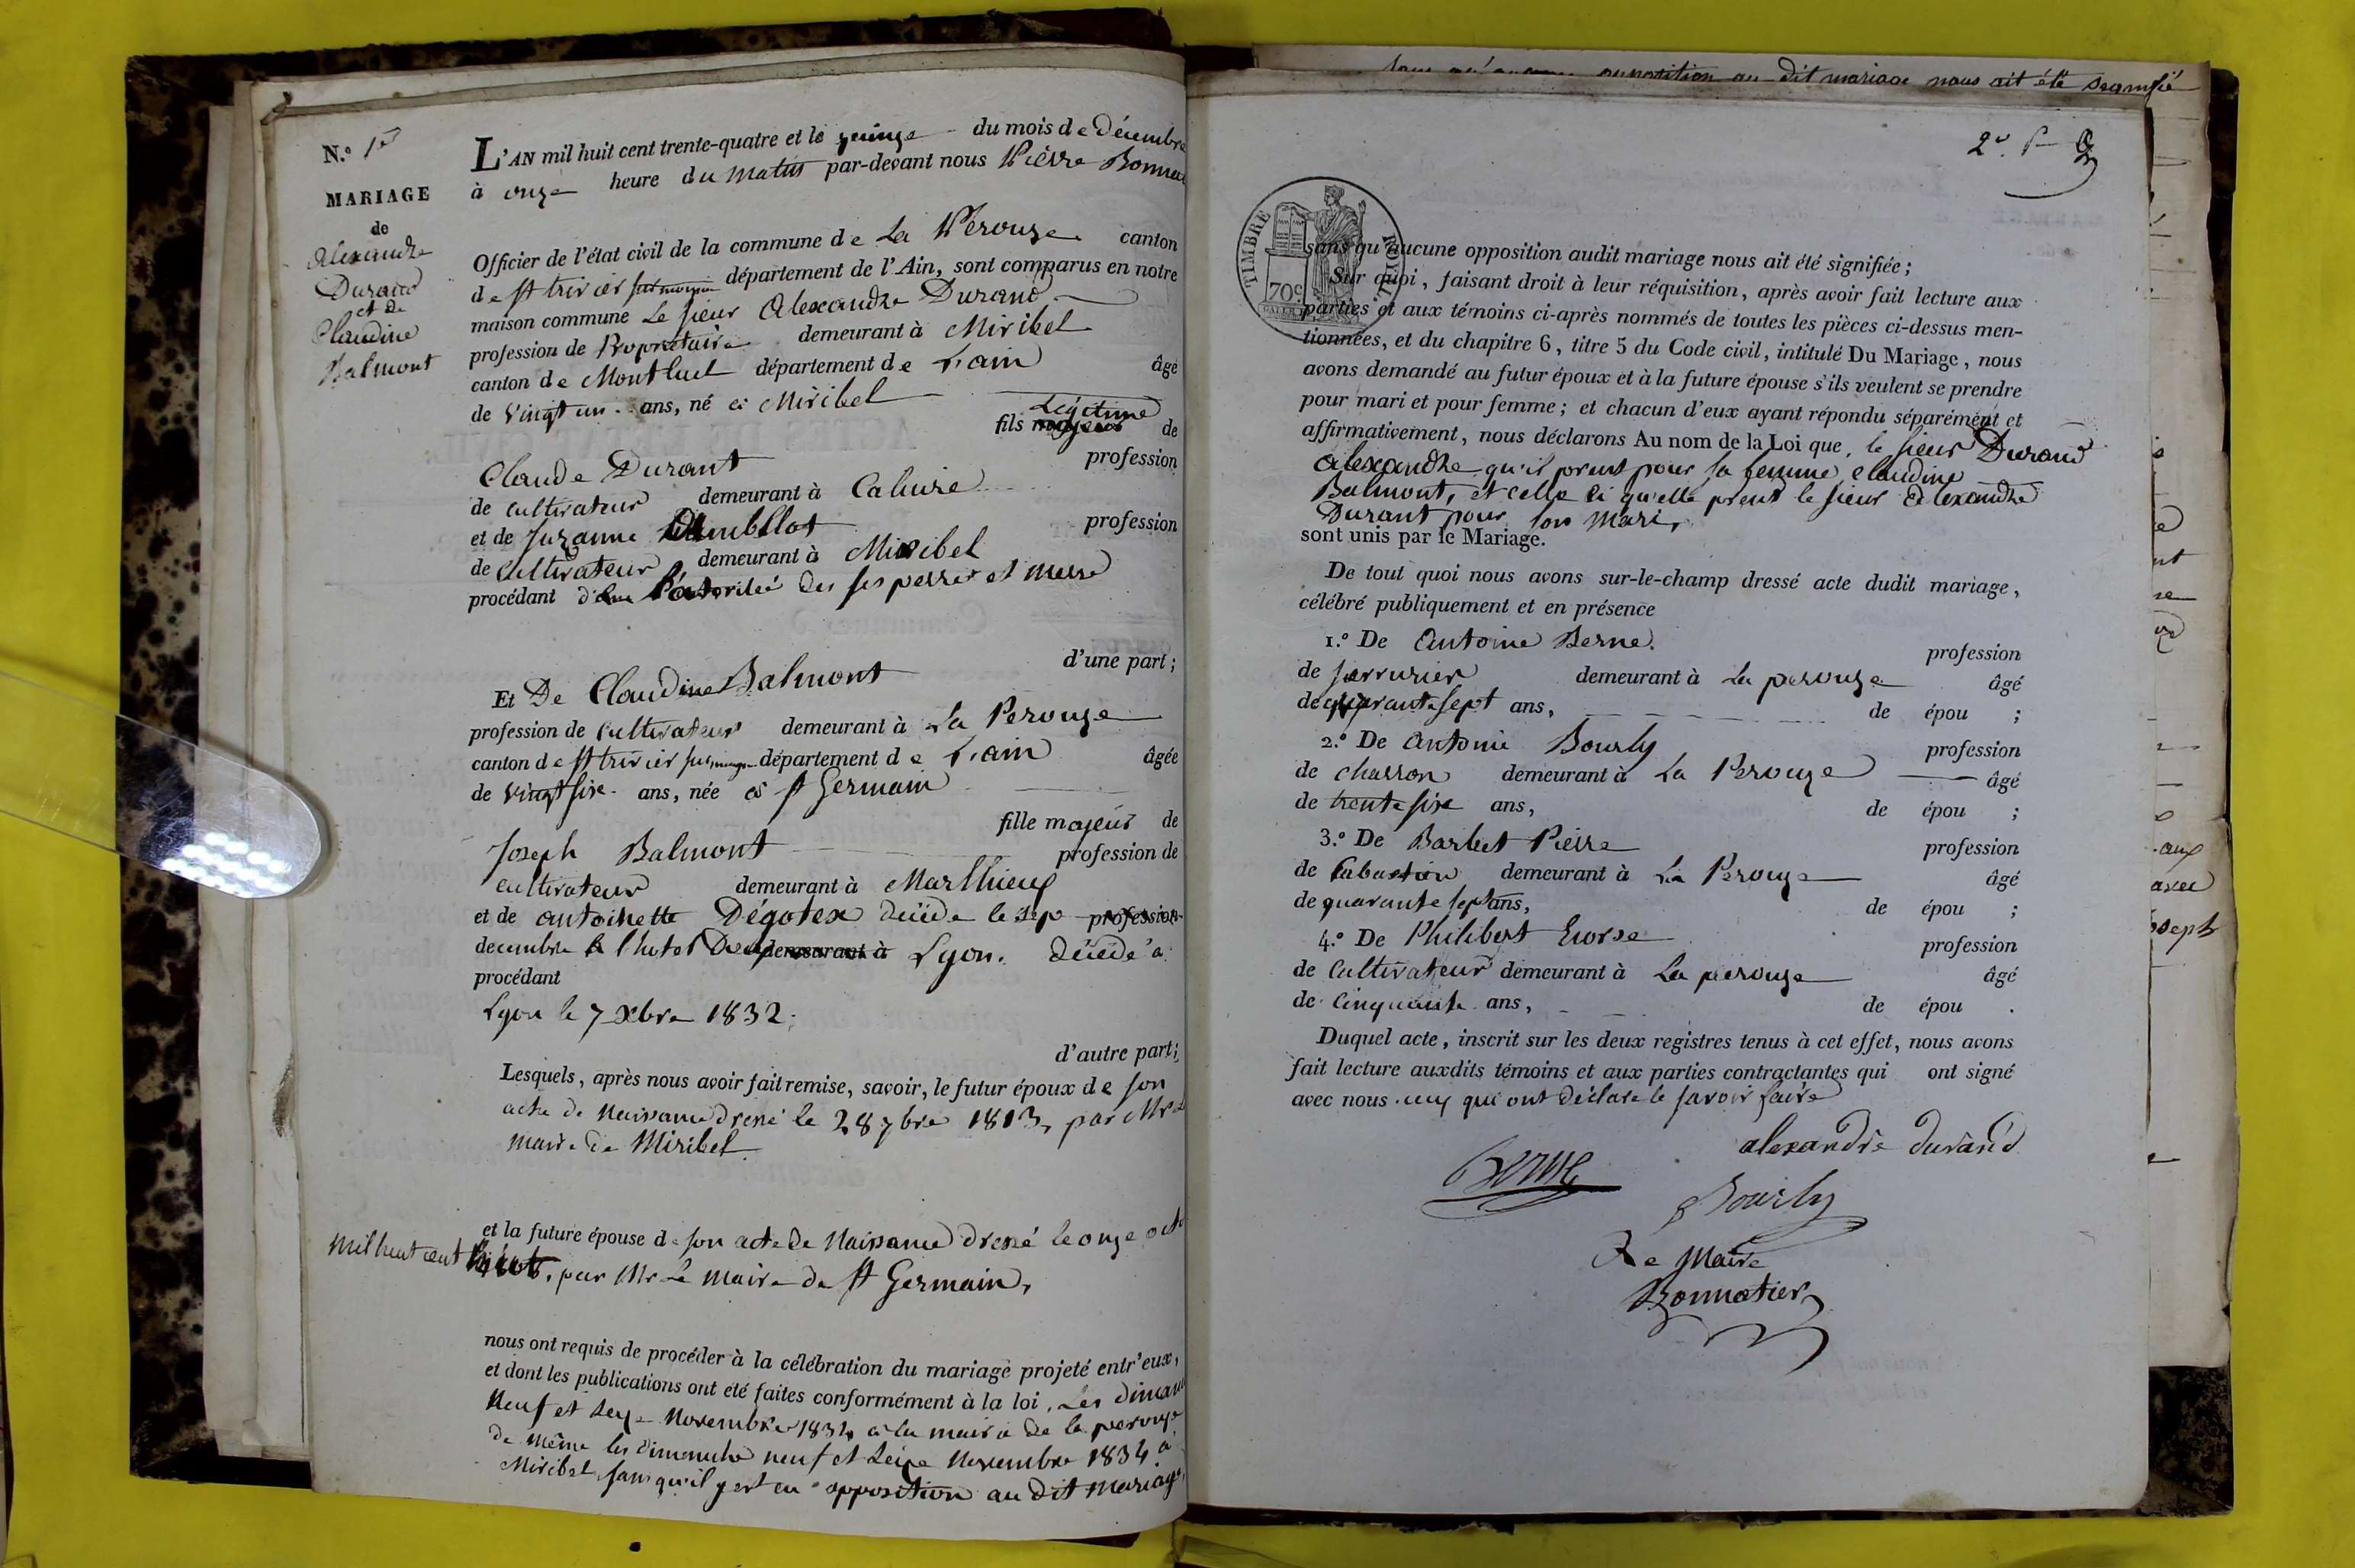 N.º 15
MARIAGE
de
Alexandre
Durand
et de
Claudine
Balmont
L'AN mil huit cent trente-quatre et le quinze du mois de décembre
à onze heure du matin par-devant nous Pierre
Officier de l'état civil de la commune de La Pérouze canton
de St trivier département de l'Ain, sont comparus en notre
maison commune Le sieur Alexandre Durand
profession de Propriétaire demeurant à Miribel
canton de Montluel département de L'ain âgé
de vingt un ans, né à Miribel
Légitime
fils majeur de
Claude Durant profession
de cultivateur demeurant à Caluire
et de Suzanne profession
de Cultivateur demeurant à Miribel
procédant des ses perre et merre
d'une part ;
Et De Claudine Balmont
profession de Cultivateur demeurant à La Perouze
canton de St trivier département de L'ain âgée
de vingt six ans, née à St Germain
fille majeur de
Joseph Balmont profession de
cultivateur demeurant à Marlhieux
et de antoinette Dégotex décéde le sep profession
decembre a l'hotel demeurant à Lyon. décédé a
procédant
Lyon le 7 xbre 1832.
d'autre part ;
Lesquels, après nous avoir fait remise, savoir, le futur époux de son
acte de Naissance dressé le 28 7bre 1813, par Mr
maire de Miribel.
et la future épouse de son acte de Naissance dressé le onze
mil huit cent par Mr Le maire de St Germain,
nous ont requis de procéder à la célébration du mariage projeté entr'eux,
et dont les publications ont été faites conformément à la loi, Les
Neuf et Seze Novembre 1834 a la mairie de la perouze
de même les dimanche neuf et Seize Novembre 1834 a
Miribel, sans qu'il y est eu opposition au dit mariage,
opposition au dit mariage nous ait été
TIMBRE ROYAL
70c
sans qu'aucune opposition audit mariage nous ait été signifiée ;
Sur quoi, faisant droit à leur réquisition, après avoir fait lecture aux
parties et aux témoins ci-après nommés de toutes les pièces ci-dessus men-
tionnées, et du chapitre 6, titre 5 du Code civil, intitulé Du Mariage, nous
avons demandé au futur époux et à la future épouse s'ils veulent se prendre
pour mari et pour femme ; et chacun d'eux ayant répondu séparément et
affirmativement, nous déclarons Au nom de la Loi que, le sieur Durand
alexandre qu'il prent pour sa femme, claudine
Balmont, et celle ci qu'elle prent le sieur Alexandre
Durant pour son Mari,
sont unis par le Mariage.
De tout quoi nous avons sur-le-champ dressé acte dudit mariage,
célébré publiquement et en présence
1.º De Antoine Berne. profession
de serrurier demeurant à La perouze âgé
de quarante sept ans, de épou ;
2.º De Antonie Bourly profession
de charron demeurant à La Perouze âgé
de trente six ans, de épou ;
3.º De Barbet Pierre profession
de demeurant à La Perouze âgé
de quarante sept ans, de épou ;
4.º De Philibert profession
de Cultivateur demeurant à La perouze âgé
de Cinquante ans, de épou .
Duquel acte, inscrit sur les deux registres tenus à cet effet, nous avons
fait lecture auxdits témoins et aux parties contractantes qui ont signé
avec nous ceux qui ont déclare le savoir faire
alexandre durand
Berne
Bourly
Le Maire
Bonnatier